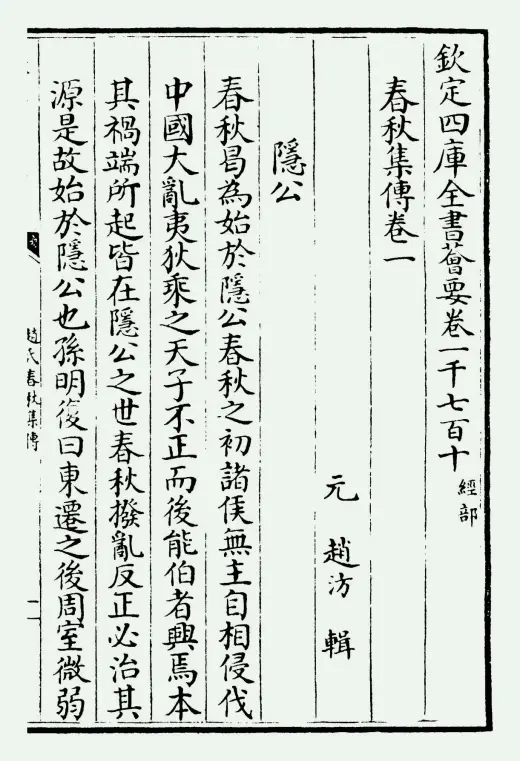 欽定四庫全書薈要卷一千七百十
經部
春秋集傳卷一
元 趙汸 輯
隱公
春秋曷為始於隱公春秋之初諸侯無主自相侵伐
中國大亂夷狄乘之天子不正而後能伯者興焉本
其禍端所起皆在隱公之世春秋撥亂反正必治其
源是故始於隱公也孫明復曰東遷之後周室微弱
趙氏春秋集傳
一